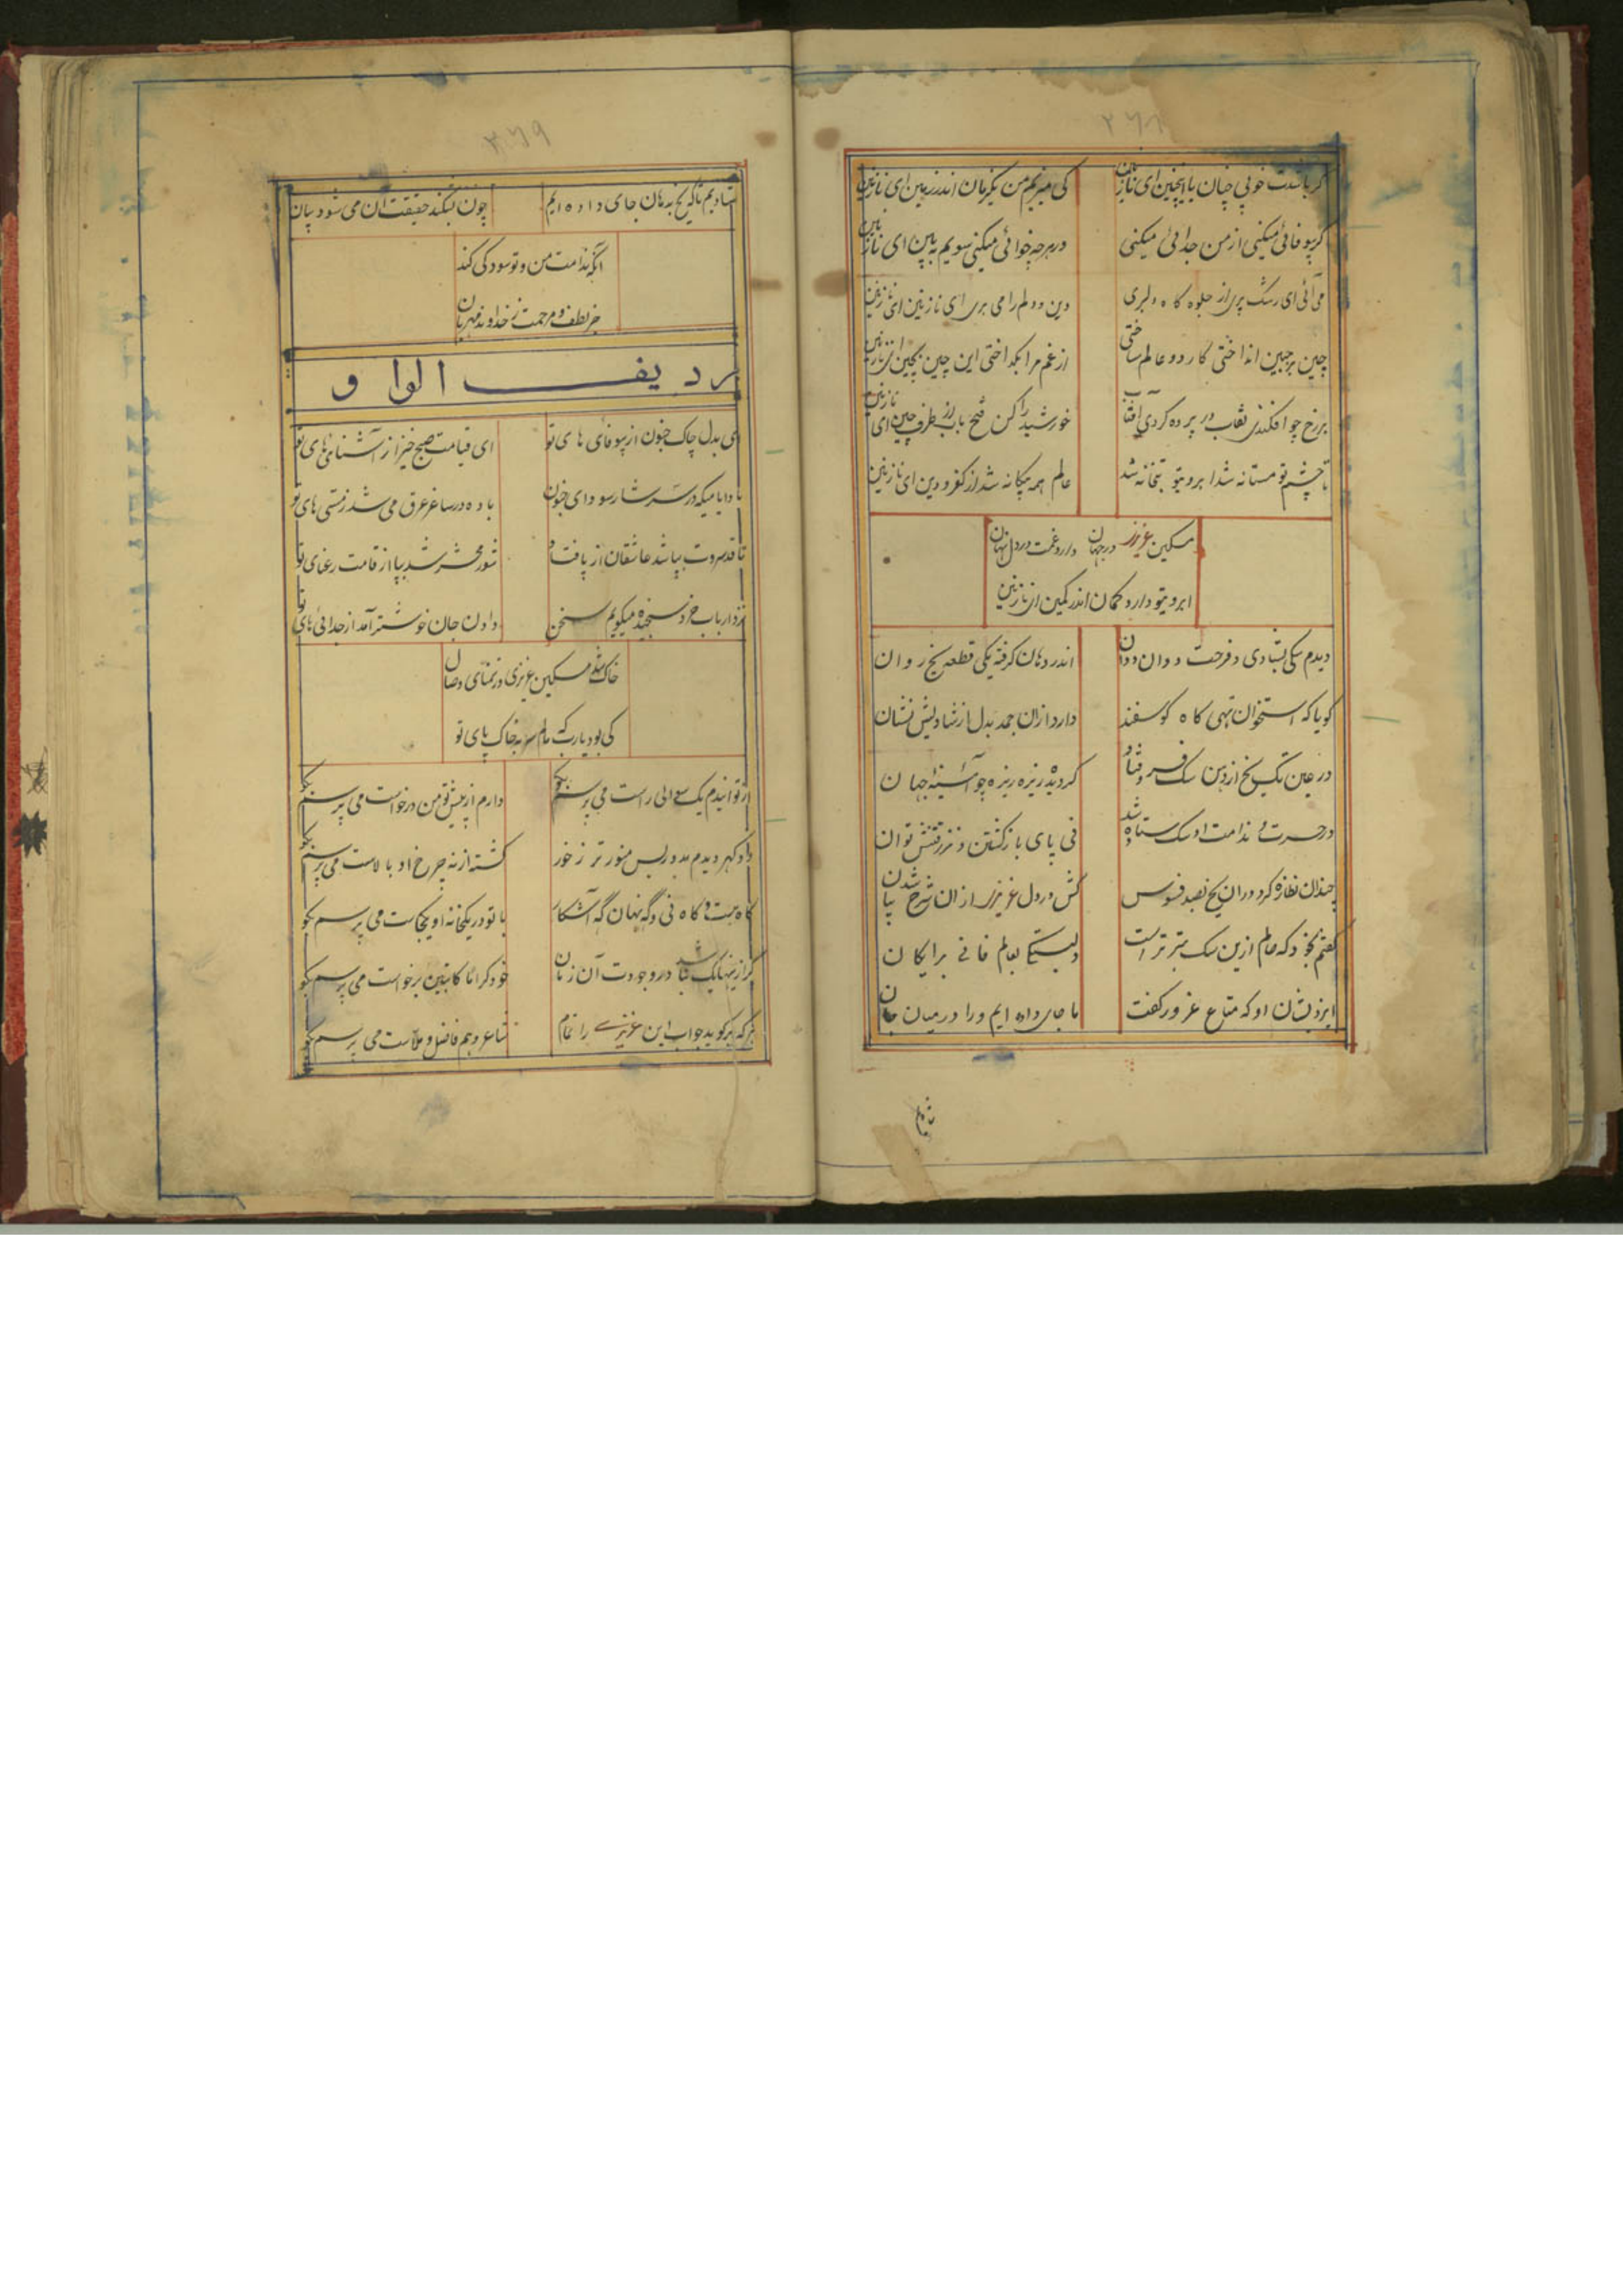 ۲۶۸
گر باشدت خوبی چنان با اینچنین ای نازنین
کی میرنجم من یکزمان اندر زمین ای نازنین
گر بیوفائی میکنی از من جدائی میکنی
در هرچه خوائی میکنی سویم به بین ای نازنین
می آئی ای رشک پری از جلوه گاه دلبری
دین و دلم را می بری ای نازنین ای نازنین
چین بر جبین انداختی کار دو عالم ساختی
از غم مرا بگداختی این چین بچین ای نازنین
بر رخ چو افکندی نقاب در پرده کردی آفتاب
خورشید را کن فتح باب از طرف چین ای نازنین
تا چشم تو مستانه شد ابروی تو بتخانه شد
عالم همه بیگانه شد از کفر و دین ای نازنین
مسکین عزیزی در جهان دارد غمت در دل نهان
ابروی تو دارد کمان اندر کمین ای نازنین
دیدم سگی بشادی و فرحت دوان دوان
اندر دهان گرفته یکی قطعه یخ روان
گویا که استخوان تهی گاه گوسفند
دارد ازان جمد بدل از شادیش نشان
در عین تگ یخ از دهن سگ فرو فتاد
گردید ریزه ریزه چو آئینه جهان
در حسرت و ندامت او سگ ستاده شد
نی پای بازگشتن و نزرفتنش توان
چندان نظاره کرد دران یخ بصد فسوس
کش در دل عزیزی ازان شرح شدن بیا
گفتم بخود که عالم ازین سگ بتر تر است
دلبستگی بعالم فانی برایگان
ایزد بشان او که متاع غرور گفت
ما جای داده ایم ورا در میان جان
شادیم
۲۶۹
شادیم تا که یخ به دهان جای داده ایم
چون بشکند حقیقت آن می شود بیان
آنگه ندامت من و تو سود کی کند
جز لطف و مرحمت ز خداوند مهربان
ردیف الواو
ای بدل چاک جنون از بیوفائی های تو
ای قیامت صبح خیز از آشنائی های تو
باده در ساغر عرق می شد ز مستی های تو
تا قد سروت بپا شد عاشقان از پا فتاد
شور محشر شد بپا از قامت رعنای تو
نزد ارباب خرد سنجیده میگویم سخن
دادن جان خوشتر آمد از جدائی های تو
خاک شد مسکین عزیزی در تمنای وصال
کی بود یارب که مالم سر به خاک پای تو
از تو ایندم یک سوالی راست می پرسم بگو
دارم از پیش تو من درخواست می پرسم بگو
گشته از نه چرخ او بالاست می پرسم بگو
گاه هست و گاه نی و گه نهان گه آشکار
با تو در یکخانه او یکجاست می پرسم بگو
گر ازینها یک نباشد در وجودت آن زمان
خود کراما کاتبین برخواست می پرسم بگو
هر که برگوید جواب این عزیزی را تمام
شاعر و هم فاضل و ملاست می پرسم بگو